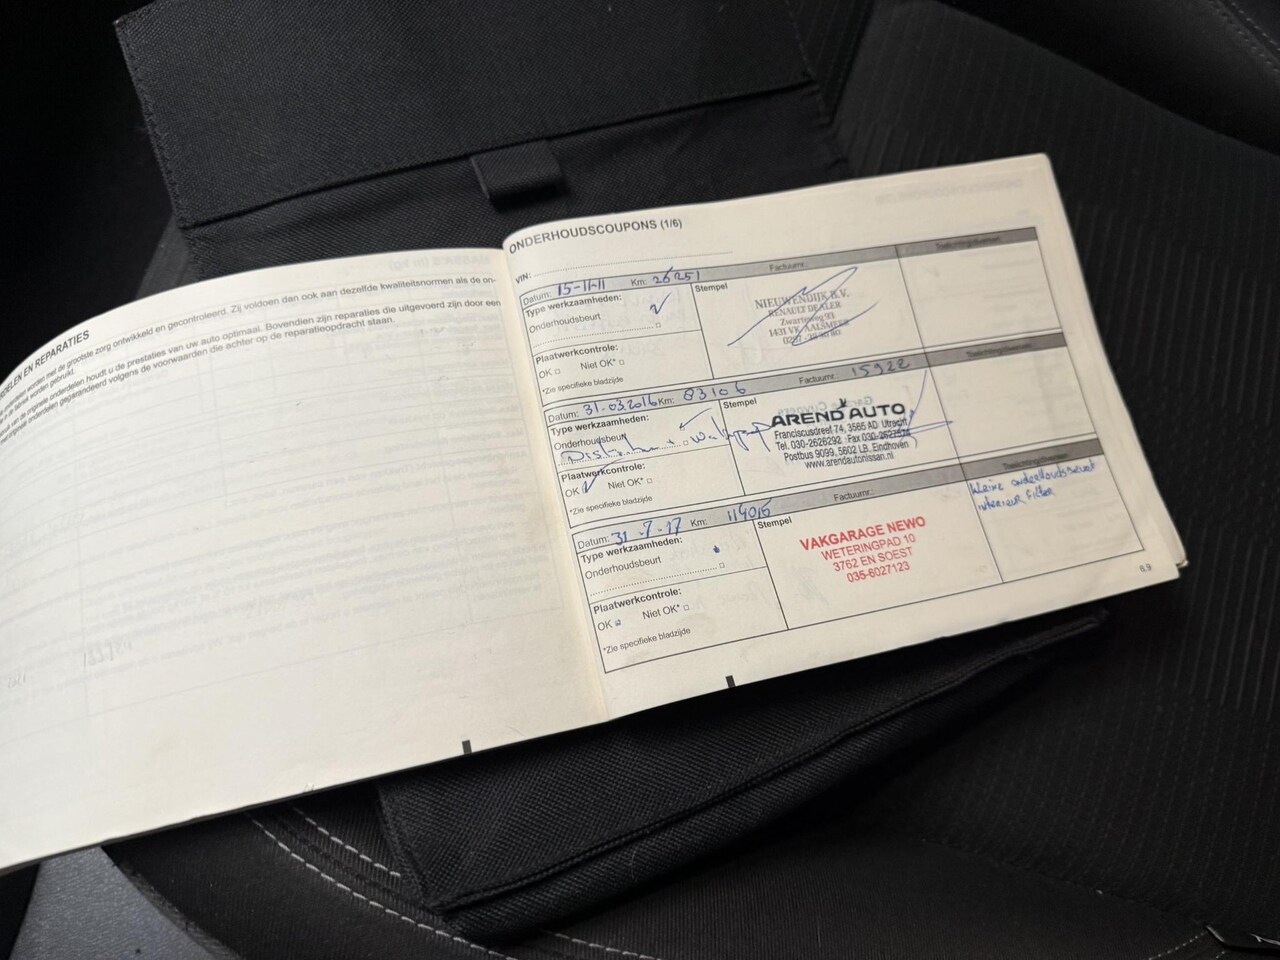 RDELEN EN REPARATIES
worden met de grootste zorg ontwikkeld en gecontroleerd. Zij voldoen dan ook aan dezelfde kwaliteitsnormen als de on-
gebruikt.
originele onderdelen houdt u de prestaties van uw auto optimaal. Bovendien zijn reparaties die uitgevoerd zijn door een
originele onderdelen gegarandeerd volgens de voorwaarden die achter op de reparatieopdracht staan.
ONDERHOUDSCOUPONS (1/6)
VIN:
Datum: 15-11-11 Km: 26251 Factuurnr.:
Type werkzaamheden:
Onderhoudsbeurt
Plaatwerkcontrole:
OK □ Niet OK* □
*Zie specifieke bladzijde
Stempel
NIEUWENDIJK B.V.
RENAULT DEALER
Zwarteweg 93
1431 VK AALSMEER
Datum: 31-03-2016 Km: 83106 Factuurnr.: 15922
Type werkzaamheden:
Onderhoudsbeurt
Plaatwerkcontrole:
OK Niet OK* □
*Zie specifieke bladzijde
Stempel
AREND AUTO
Franciscusdreef 74, 3565 AD Utrecht
Tel. 030-2626292 Fax 030-2627574
Postbus 9099, 5602 LB Eindhoven
www.arendautonissan.nl
Datum: 31-7-17 Km: 114016 Factuurnr.:
Type werkzaamheden:
Onderhoudsbeurt
Plaatwerkcontrole:
OK Niet OK* □
*Zie specifieke bladzijde
Stempel
VAKGARAGE NEWO
WETERINGPAD 10
3762 EN SOEST
035-6027123
kleine onderhoudsbeurt
interieur filter
6.9